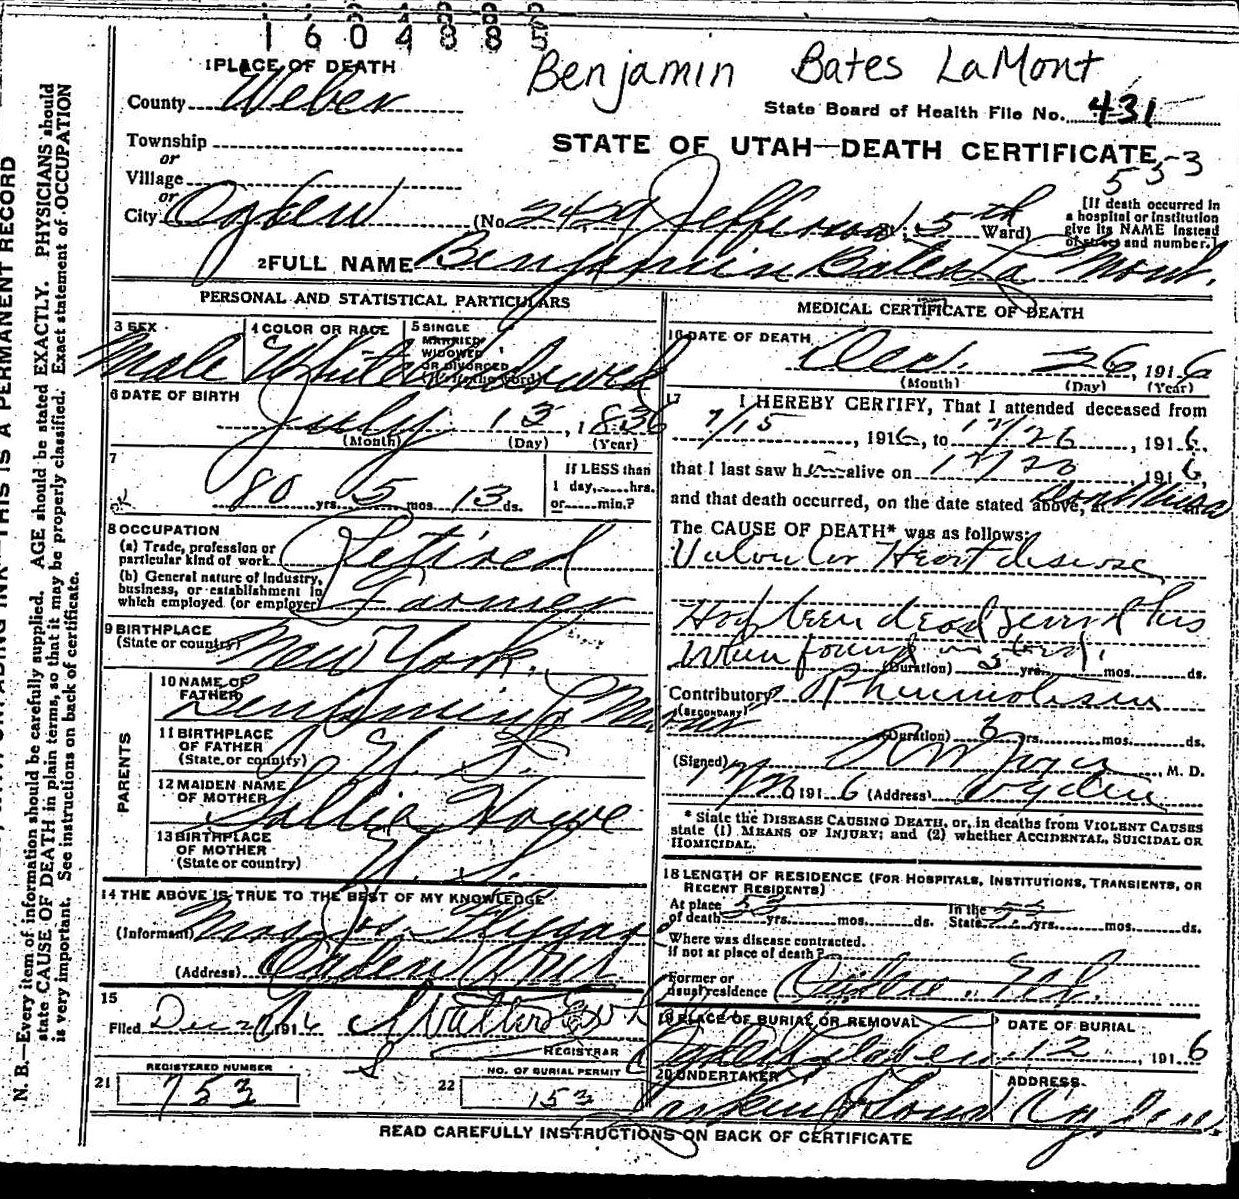 1604885
Benjamin Bates LaMont
1 PLACE OF DEATH
County Weber
State Board of Health File No. 431
Township
or
STATE OF UTAH—DEATH CERTIFICATE
533
Village
or
City Ogden (No. 2429 Jefferson St; 5th Ward)
[If death occurred in
a hospital or institution
give its NAME instead
of street and number.]
2 FULL NAME Benjamin Bates La Mont.
PERSONAL AND STATISTICAL PARTICULARS
3 SEX
Male
4 COLOR OR RACE
White
5 SINGLE
MARRIED
WIDOWED
OR DIVORCED
(Write the word)
Widowed
6 DATE OF BIRTH
July 13, 1836
(Month) (Day) (Year)
7
80 yrs. 5 mos. 13 ds.
If LESS than
1 day,......hrs.
or......min.?
8 OCCUPATION
(a) Trade, profession or
particular kind of work Retired
(b) General nature of Industry,
business, or establishment in
which employed (or employer) Farmer
9 BIRTHPLACE
(State or country) New York.
PARENTS
10 NAME OF
FATHER Benjamin
11 BIRTHPLACE
OF FATHER
(State or country) U. S.
12 MAIDEN NAME
OF MOTHER Howe
13 BIRTHPLACE
OF MOTHER
(State or country) U. S.
14 THE ABOVE IS TRUE TO THE BEST OF MY KNOWLEDGE
(Informant) Mrs Jos.
(Address) Ogden
15
Filed 191 Walter
REGISTRAR
REGISTERED NUMBER
21 753
NO. OF BURIAL PERMIT
22 153
MEDICAL CERTIFICATE OF DEATH
16 DATE OF DEATH
Dec. 26, 1916
(Month) (Day) (Year)
17 I HEREBY CERTIFY, That I attended deceased from
7/15, 1916, to 12/26, 1916,
that I last saw him alive on 12/20 1916,
and that death occurred, on the date stated above, at
The CAUSE OF DEATH* was as follows:
Valvular Heart disease
Had been dead several hrs
When found in bed.
(Duration) 3 yrs. mos. ds.
Contributory Rheumatism
(SECONDARY)
(Duration) 3 yrs. mos. ds.
(Signed) M. D.
191 6 (Address) Ogden
* State the DISEASE CAUSING DEATH, or, in deaths from VIOLENT CAUSES
state (1) MEANS OF INJURY; and (2) whether ACCIDENTAL, SUICIDAL OR
HOMICIDAL.
18 LENGTH OF RESIDENCE (FOR HOSPITALS, INSTITUTIONS, TRANSIENTS, OR
RECENT RESIDENTS)
At place
of death 53 yrs. mos. ds. In the
State 53 yrs. mos. ds.
Where was disease contracted.
if not at place of death?
Former or
usual residence
19 PLACE OF BURIAL OR REMOVAL
Ogden
DATE OF BURIAL
12, 1916
20 UNDERTAKER
Larkin & Sons
ADDRESS
Ogden.
READ CAREFULLY INSTRUCTIONS ON BACK OF CERTIFICATE
THIS IS A PERMANENT RECORD
N. B.—Every item of information should be carefully supplied. AGE should be stated EXACTLY. PHYSICIANS should
state CAUSE OF DEATH in plain terms, so that it may be properly classified. Exact statement of OCCUPATION
is very important. See instructions on back of certificate.